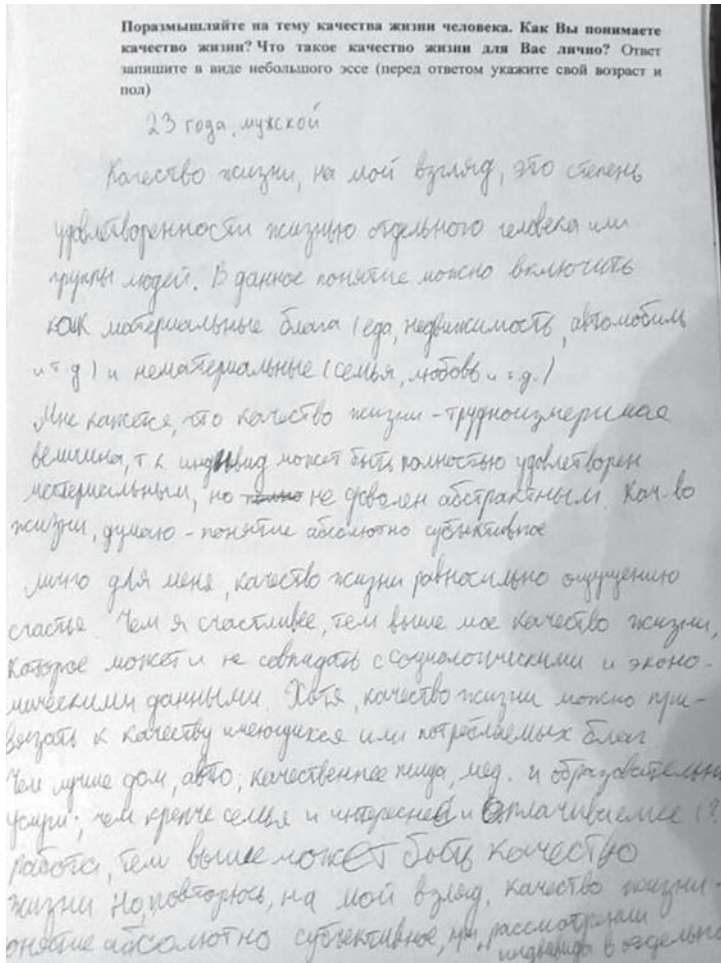 Поразмышляйте на тему качества жизни человека. Как Вы понимаете
качество жизни? Что такое качество жизни для Вас лично? Ответ
запишите в виде небольшого эссе (перед ответом укажите свой возраст и
пол)
23 года, мужской
Качество жизни, на мой взгляд, это степень
удовлетворенности жизнью отдельного человека или
группы людей. В данное понятие можно включить
как материальные блага (еда, недвижимость, автомобиль
и т д) и нематериальные (семья, любовь и т.д.)
Мне кажется, что качество жизни - трудноизмеримая
величина, т к индивид может быть полностью удовлетворен
материальным, но не доволен абстрактным. Кач-во
жизни, думаю - понятие абсолютно субъективное
лично для меня, качество жизни равносильно ощущению
счастья. Чем я счастливее, тем выше мое качество жизни,
которое может и не совпадать с социологическими и эконо-
мическими данными. Хотя, качество жизни можно при-
вязать к качеству имеющихся или потребляемых благ
Чем лучше дом, авто, качественнее пища, мед. и образовательн
услуги; чем крепче семья и интересней и оплачиваемее (?)
работа, тем выше может быть качество
жизни Но, повторюсь, на мой взгляд, качество жизни -
онятие абсолютно субъективное, при рассмотрении
индивида в отдельно